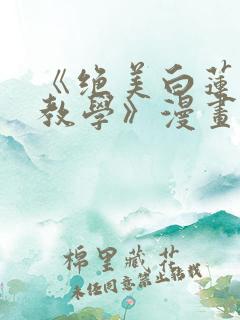 《绝美白莲
教學》漫畫
棉里藏花
未经同意禁止转载